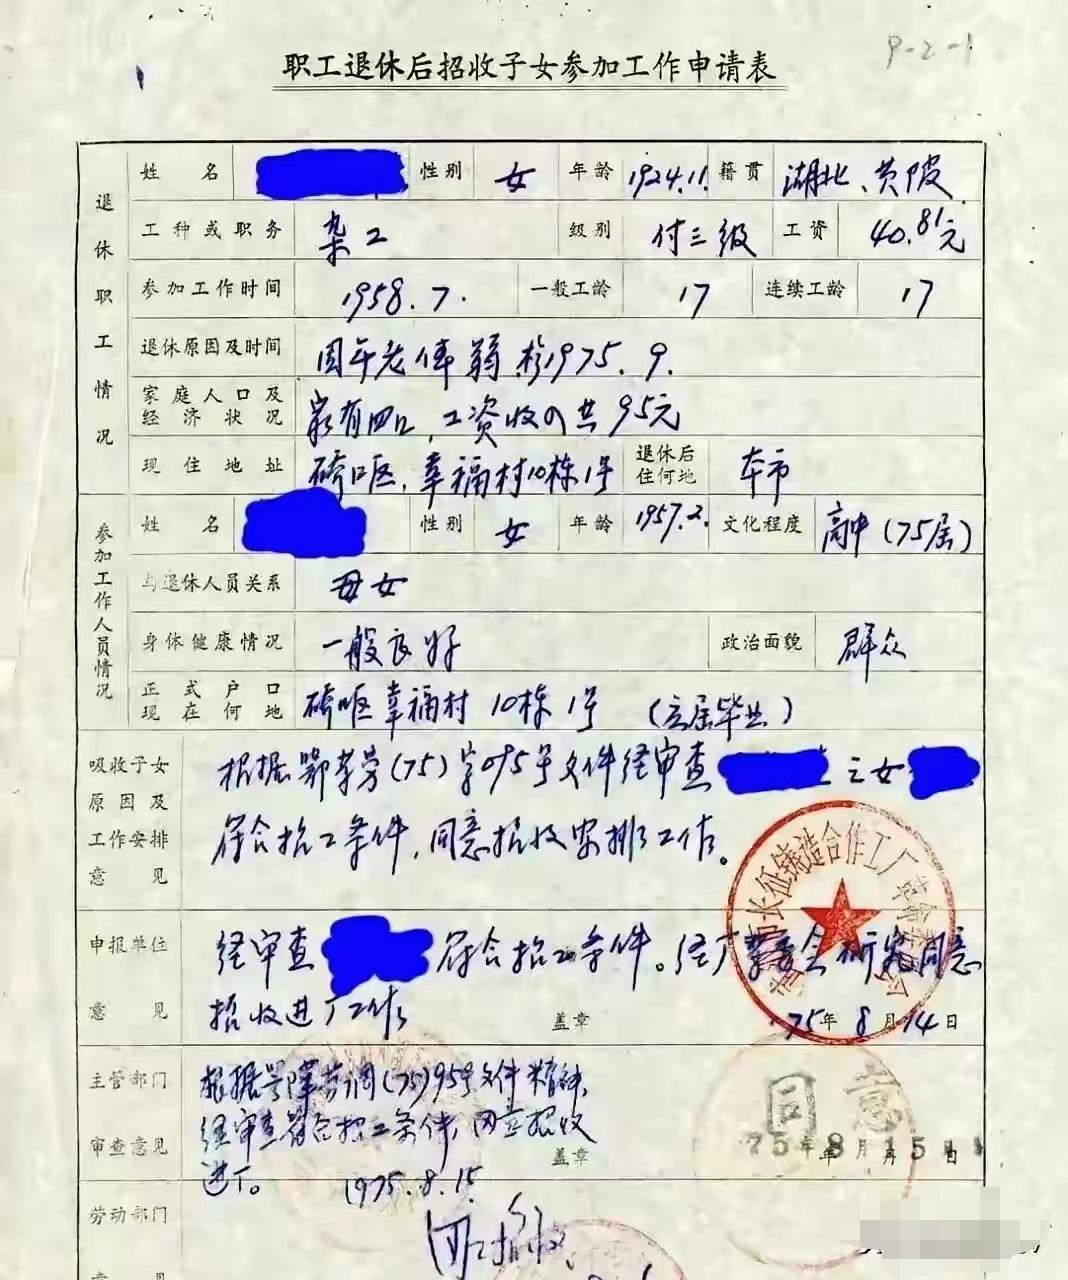 9-2-1
职工退休后招收子女参加工作申请表
退休职工情况
姓名 性别 女 年龄 1924.11. 籍贯 湖北、黄陂
工种或职务 杂工 级别 付三级 工资 40.81元
参加工作时间 1958.7. 一般工龄 17 连续工龄 17
退休原因及时间 因年老体弱.于1975.9.
家庭人口及经济状况 家有四口,工资收入共95元
现住地址 硚口区,幸福村10栋1号 退休后住何地 本市
参加工作人员情况
姓名 性别 女 年龄 1957.2. 文化程度 高中(75届)
与退休人员关系 母女
身体健康情况 一般良好 政治面貌 群众
正式户口现在何地 硚口区幸福村 10栋1号 (应届毕业)
吸收子女原因及工作安排意见
根据鄂革劳(75)字095号文件经审查 之女
符合招工条件,同意招收安排工作。
长征铸造合作工厂革命委员会
申报单位意见
经审查 符合招工条件。经厂革委会研究同意
招收进厂工作 盖章 75年8月14日
主管部门审查意见
根据 劳调(75)95号文件精神,
经审查符合招工条件,同意招收
进厂。 1975.8.15 盖章
同意
75年8月15日
劳动部门意见
同意招收